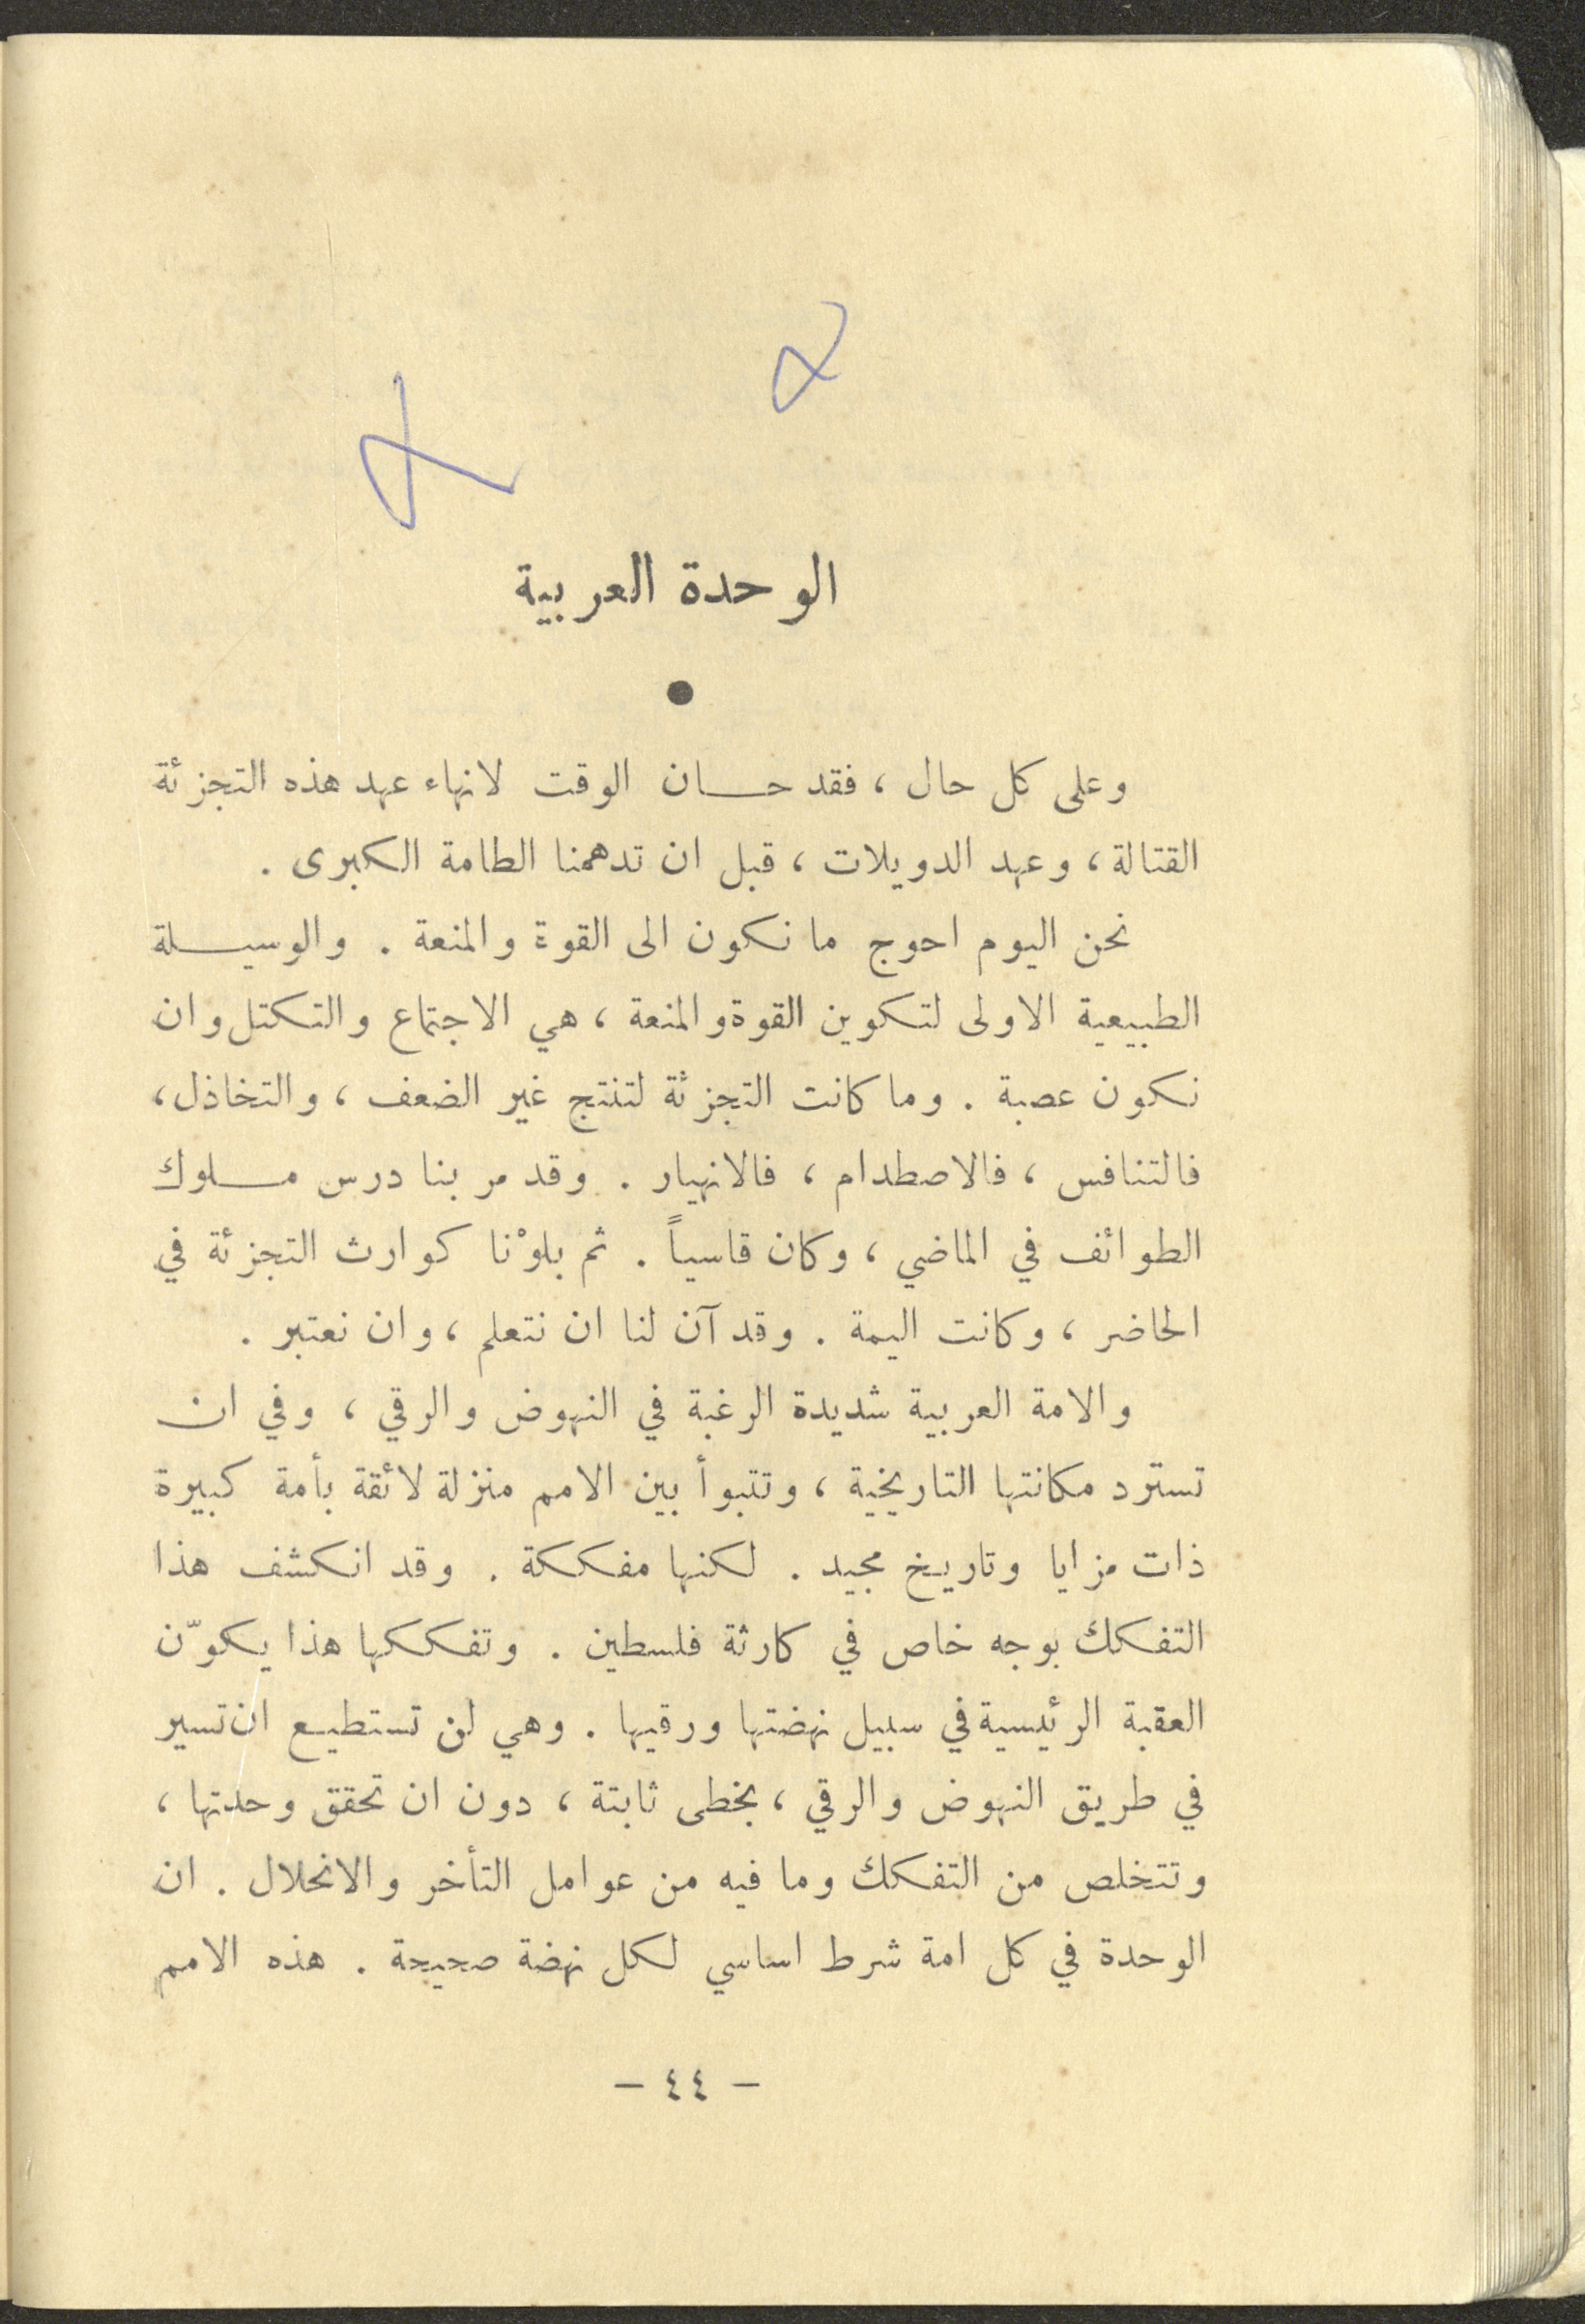 الوحدة العربية
وعلى كل حال ، فقد حان الوقت لانهاء عهد هذه التجزئة
القتالة ، وعهد الدويلات ، قبل ان تدهمنا الطامة الكبرى .
نحن اليوم احوج ما نكون الى القوة والمنعة . والوسيلة
الطبيعية الاولى لتكوين القوة والمنعة ، هي الاجتماع والتكتل وان
نكون عصبة . وما كانت التجزئة لتنتج غير الضعف ، والتخاذل ،
فالتنافس ، فالاصطدام ، فالانهيار . وقد مر بنا درس ملوك
الطوائف في الماضي ، وكان قاسياً . ثم بلوْنا كوارث التجزئة في
الحاضر ، وكانت اليمة . وقد آن لنا ان نتعلم ، وان نعتبر .
والامة العربية شديدة الرغبة في النهوض والرقي ، وفي ان
تسترد مكانتها التاريخية ، وتتبوأ بين الامم منزلة لائقة بأمة كبيرة
ذات مزايا وتاريخ مجيد . لكنها مفككة . وقد انكشف هذا
التفكك بوجه خاص في كارثة فلسطين . وتفككها هذا يكوّن
العقبة الرئيسية في سبيل نهضتها ورقيها . وهي لن تستطيع ان تسير
في طريق النهوض والرقي ، بخطى ثابتة ، دون ان تحقق وحدتها ،
وتتخلص من التفكك وما فيه من عوامل التأخر والانحلال . ان
الوحدة في كل امة شرط اساسي لكل نهضة صحيحة . هذه الامم
- ٤٤ -